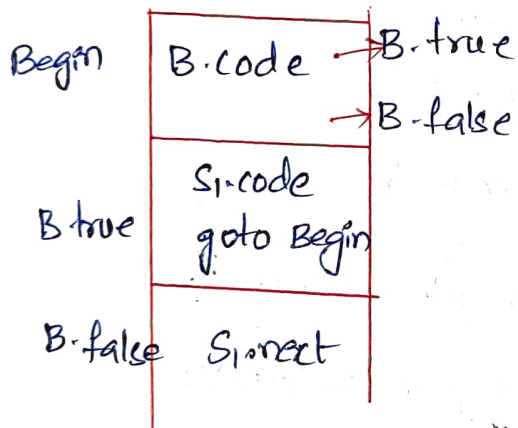 Begin B.code B.true
B.false
S₁.code
B.true goto Begin
B.false S₁.next